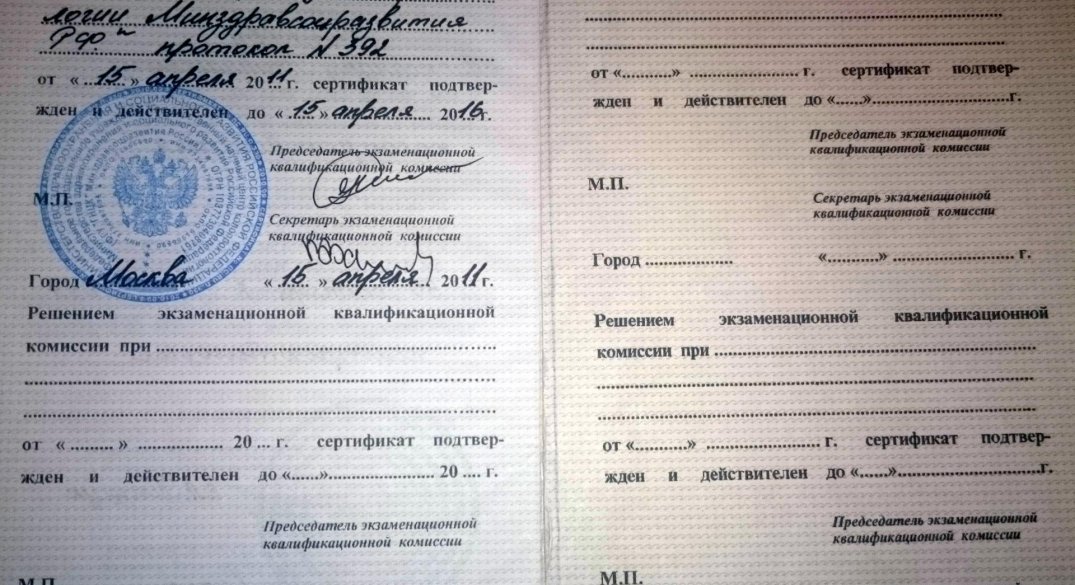 логии Минздравсоцразвития
РФ" протокол N 392
от «15» апреля 2011 г. сертификат подтвер-
жден и действителен до «15» апреля 2016г.
Председатель экзаменационной
квалификационной комиссии
М.П.
Секретарь экзаменационной
квалификационной комиссии
Город Москва «15» апреля 2011 г.
Решением экзаменационной квалификационной
комиссии при ....................
....................
....................
от «.........» .................. 20 ... г. сертификат подтвер-
жден и действителен до «......».................. 20 .... г.
Председатель экзаменационной
квалификационной комиссии
М.П.
....................
....................
от «............» ........................ г. сертификат подтвер-
жден и действителен до «......»..............................г.
Председатель экзаменационной
квалификационной комиссии
М.П.
Секретарь экзаменационной
квалификационной комиссии
Город ................... «...........» ............................ г.
Решением экзаменационной квалификационной
комиссии при ....................
....................
....................
от «............» ........................ г. сертификат подтвер-
жден и действителен до «......»..............................г.
Председатель экзаменационной
квалификационной комиссии
М.П.